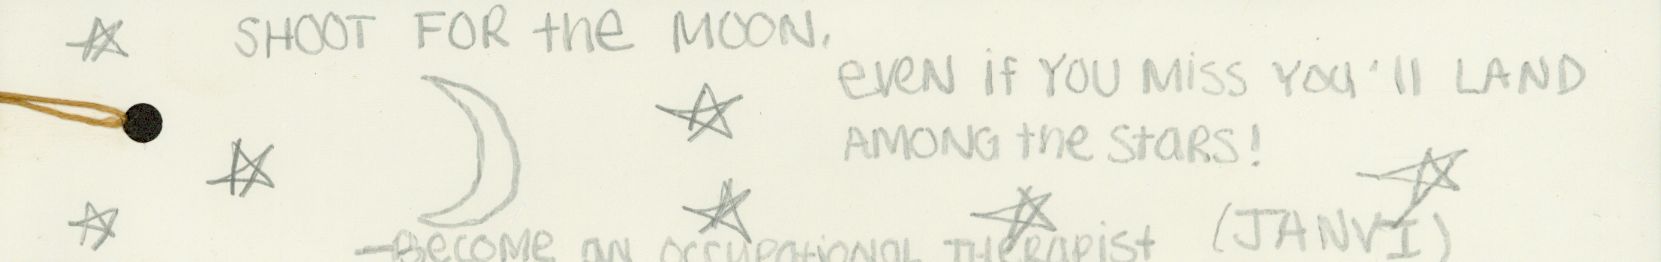 SHOOT FOR the MOON.
eveN if YOU Miss You'll LAND
AMONG the StaRS!
-Become an occupational therapist (JANVI)